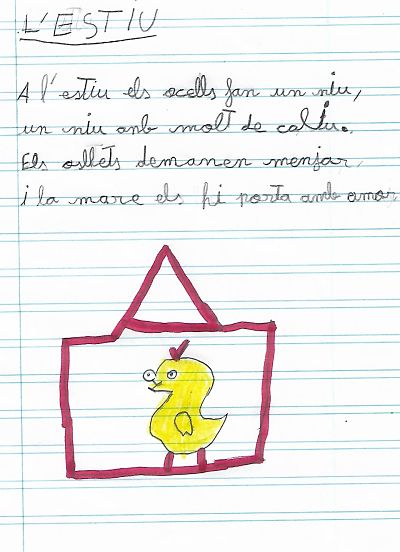 L'ESTIU
A l'estiu els ocells fan un niu,
un niu anb molt de caliu.
Els osllets demanen menjar
i la mare els hi porta amb amor